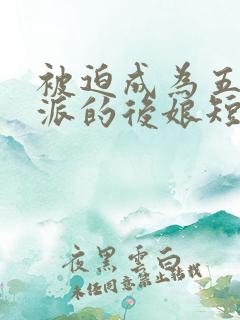 被迫成為五
派的後娘短
夜黑雲白
未经同意禁止转载